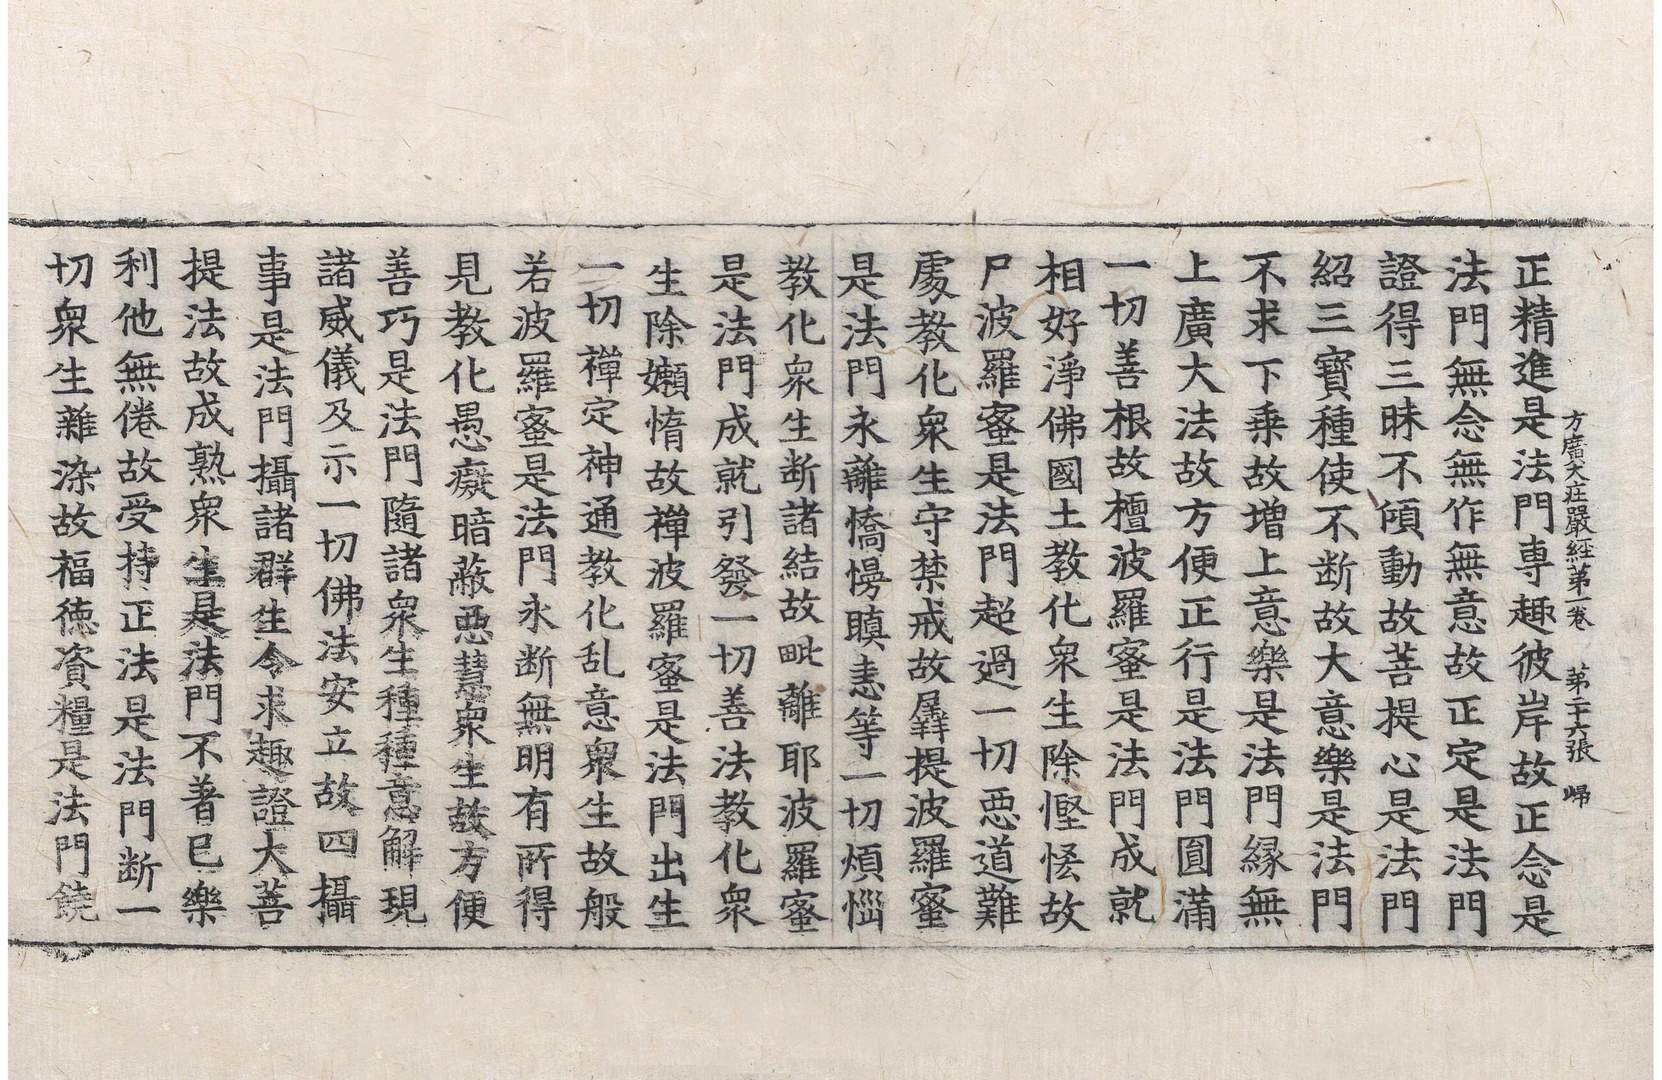 正精進是法門専趣彼岸故正念是
方廣大莊嚴經第一卷 第二十六張 歸
法門無念無作無意故正定是法門
證得三昧不傾動故菩提心是法門
紹三寶種使不断故大意樂是法門
不求下乗故増上意樂是法門縁無
上廣大法故方便正行是法門圎滿
一切善根故檀波羅蜜是法門成就
相好淨佛國土教化衆生除慳悋故
尸波羅蜜是法門超過一切惡道難
處教化衆生守禁戒故羼提波羅蜜
是法門永離憍慢瞋恚等一切煩惱
教化衆生断諸結故毗離耶波羅蜜
是法門成就引發一切善法教化衆
生除嬾惰故禪波羅蜜是法門出生
一切禪定神通教化乱意衆生故般
若波羅蜜是法門永断無明有所得
見教化愚癡暗蔽惡慧衆生故方便
善巧是法門隨諸衆生種種意解現
諸威儀及示一切佛法安立故四攝
事是法門攝諸群生令求趣證大菩
提法故成熟衆生是法門不著己樂
利他無倦故受持正法是法門断一
切衆生雜染故福徳資糧是法門饒